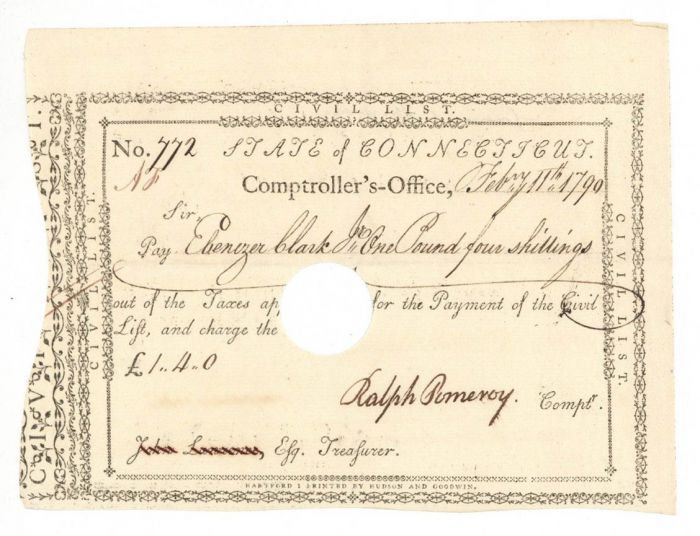 CIVIL LIST.
No. 772 STATE of CONNECTICUT.
Comptroller's-Office, Febry 11th 1790
Sir,
Pay Ebenezer Clark Jr One Pound four shillings
out of the Taxes app for the Payment of the Civil
List, and charge the
£1.4.0
Ralph Pomeroy. Comptr.
John Esq. Treasurer.
CIVIL LIST.
CIVIL LIST.
HARTFORD: PRINTED BY HUDSON AND GOODWIN.